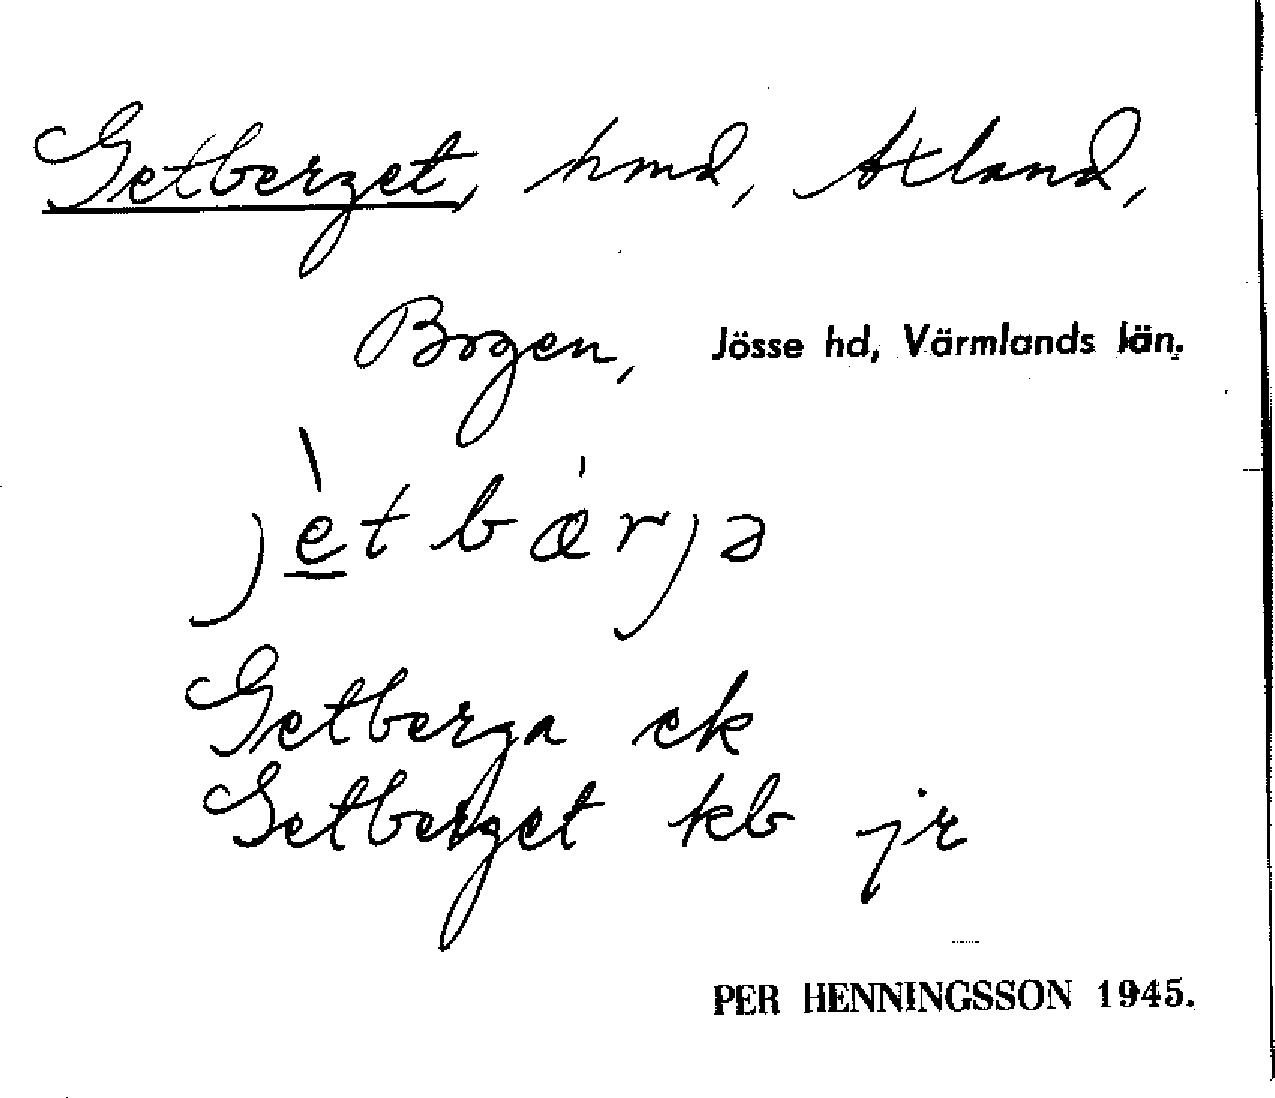 Getberget, hmd, Åtland,
Bogen, Jösse hd, Värmlands län.
jè̲tbærjə
Getberga ek
Getberget kb jr
PER HENNINGSSON 1945.